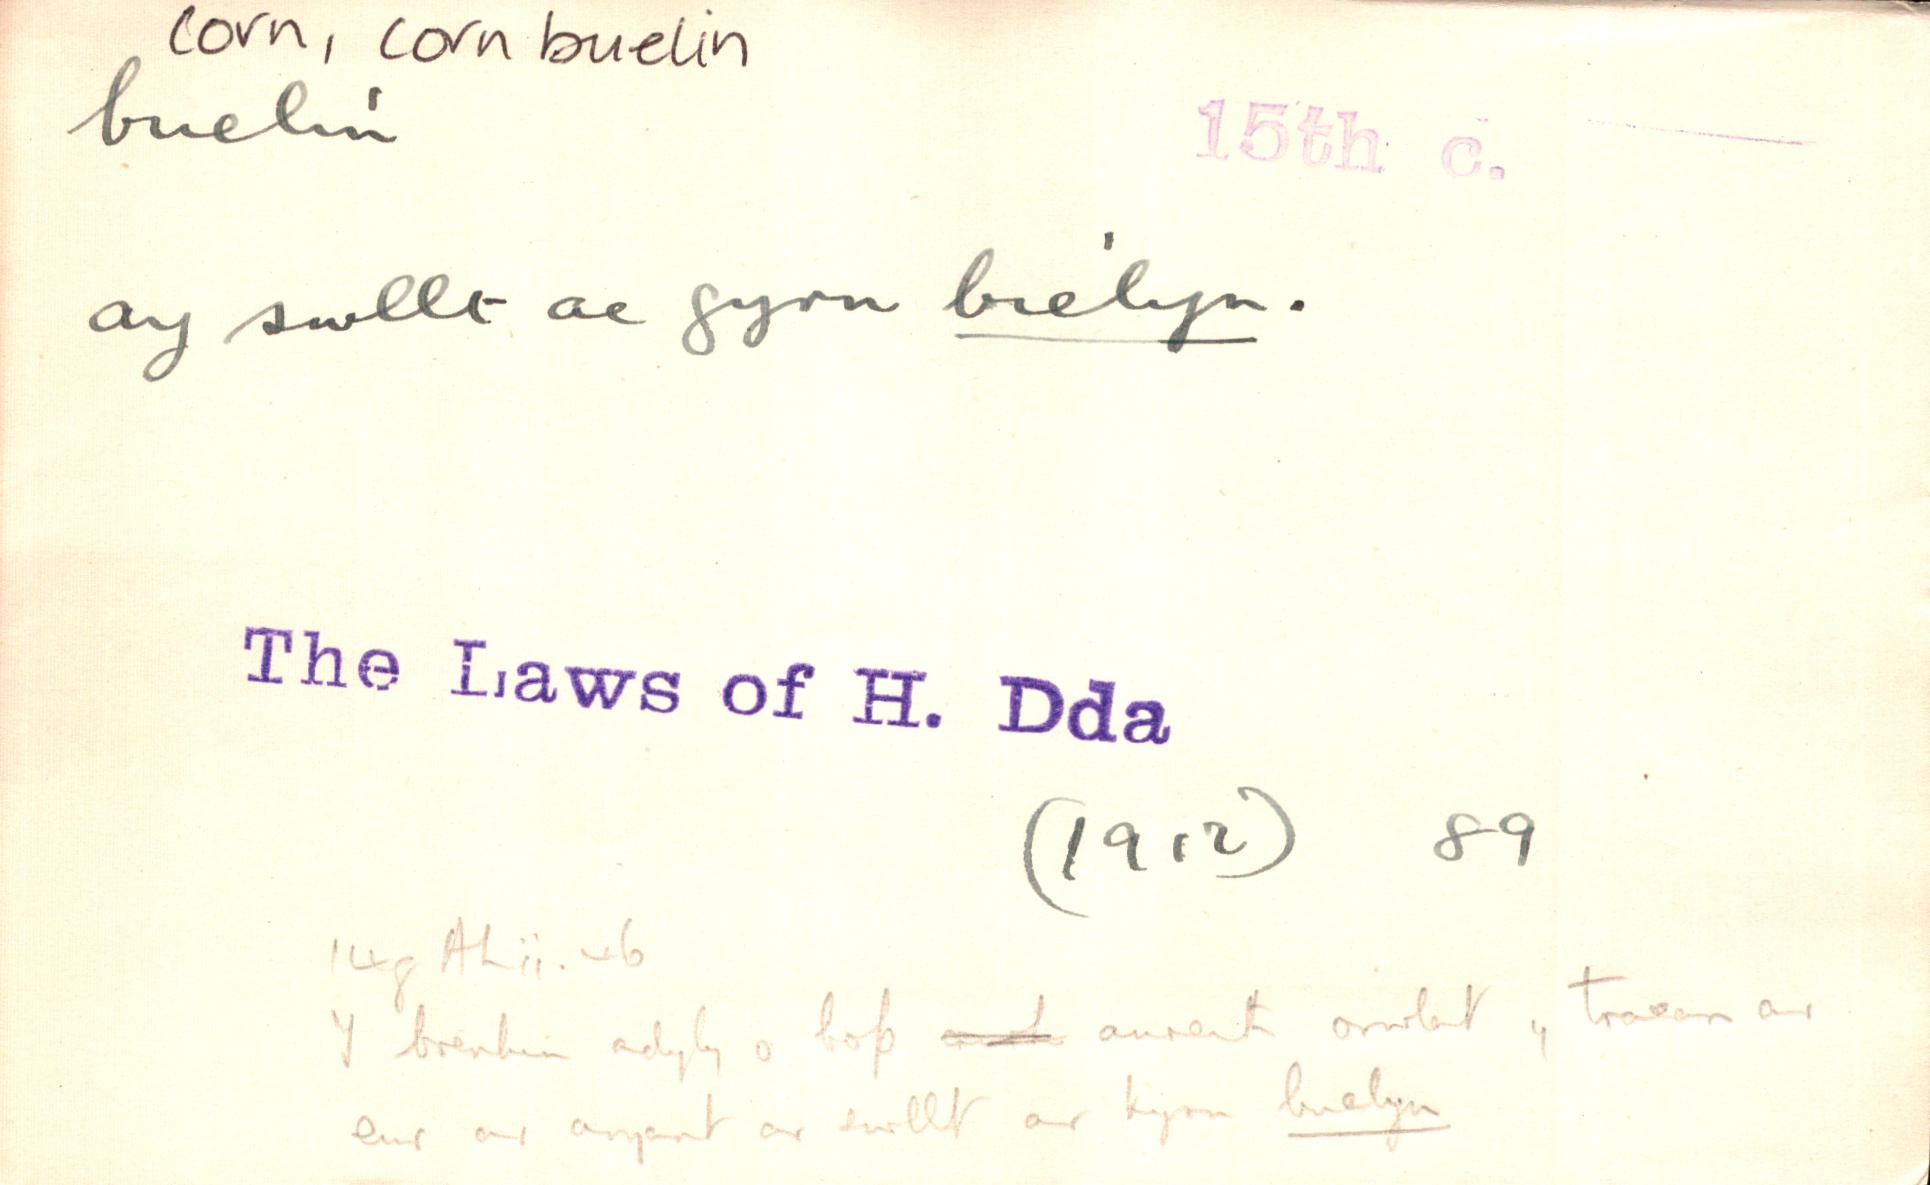 corn, corn buelin
buelin
15th c.
ay swllt ac gyrn bielyn.
The Laws of H. Dda
(1912) 89
14g AL ii. 46
Y brenhin adyly o bop anreith orwlat y traean ar
eur ar aryant ar swllt ar kyrn buelyn